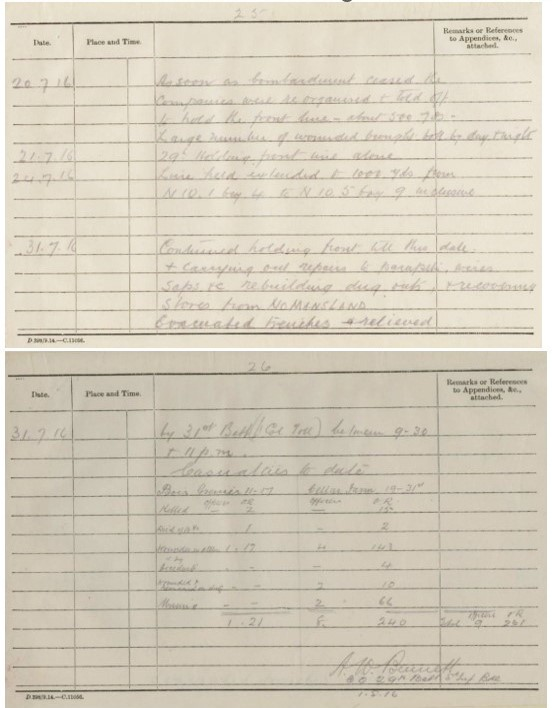 25.
Remarks or References
to Appendices, &c.,
attached.
Date. Place and Time.
20.7.16 As soon as bombardment ceased the
Companies were re organised & told off
to hold the front line - about 500 yds -
Large number of wounded brought back by day & night
21.7.16 29th Holding front line alone
24.7.16 Line held extended to 1000 yds from
N 10.1 bay 4 to N 10.5 bay 9 inclusive
31.7.16 Continued holding front till this date
& carrying out repairs to parapets, wires
Saps &c rebuilding dug outs, & recovering
Stores from NO MANS LAND
Evacuated trenches & relieved
D 398/9.14.—C.11036.
26
Remarks or References
to Appendices, &c.,
attached.
Date. Place and Time.
31.7.16 by 31st Batt (Col Toll) between 9-30
& 11 p.m.
Casualties to date
11-17 19-31st
Officers OR Officers O.R.
Killed - 2 - 15
1 - 2
1 - 17 4 143
- 4
- - 2 10
Missing - - 2 66
1 - 21 8 240 Total 9. 261
A. W. Bennett
29th Batt
1-8-16
D 398/9.14.—C.11036.